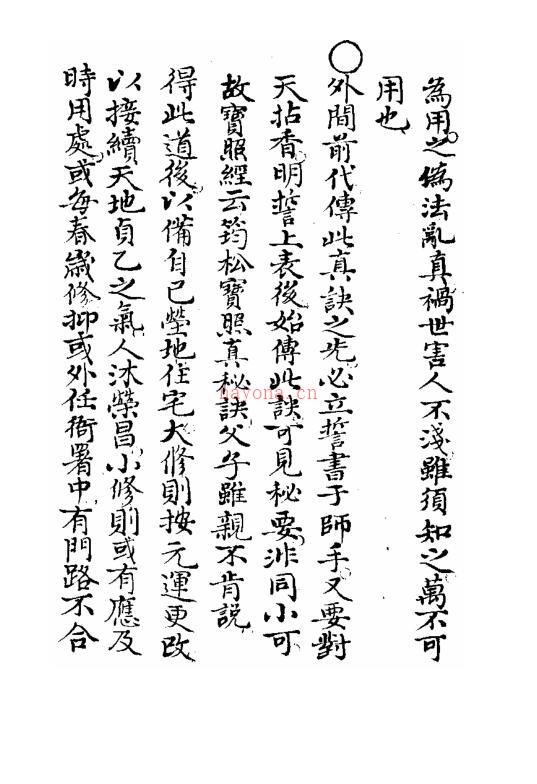 為用之偽法亂真禍世害人不淺雖須知之萬不可
用也
○外間前代傳此真訣之先必立誓書于師手又要對
天拈香明誓上表後始傳此訣可見秘要非同小可
故寶照經云筠松寶照真秘訣父子雖親不肯説
得此道後以備自己塋地住宅大修則按元運更改
以接續天地貞乙之氣人沐榮昌小修則或有應及
時用處或每春歲修抑或外任衙署中有門路不合
nayona.cn